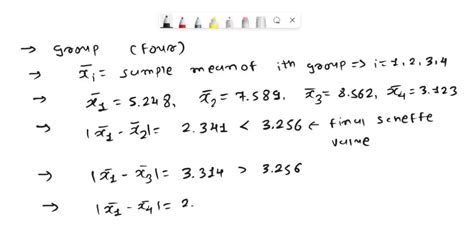 → group (four)
→ x̄ᵢ = sumple mean of ith group ⇒ i = 1, 2, 3, 4
→ x̄₁ = 5.248, x̄₂ = 7.589, x̄₃ = 8.562, x̄₄ = 3.123
→ |x̄₁ - x̄₂| = 2.341 < 3.256 ← final scheffe
value
→ |x̄₁ - x̄₃| = 3.314 > 3.256
→ |x̄₁ - x̄₄| = 2.